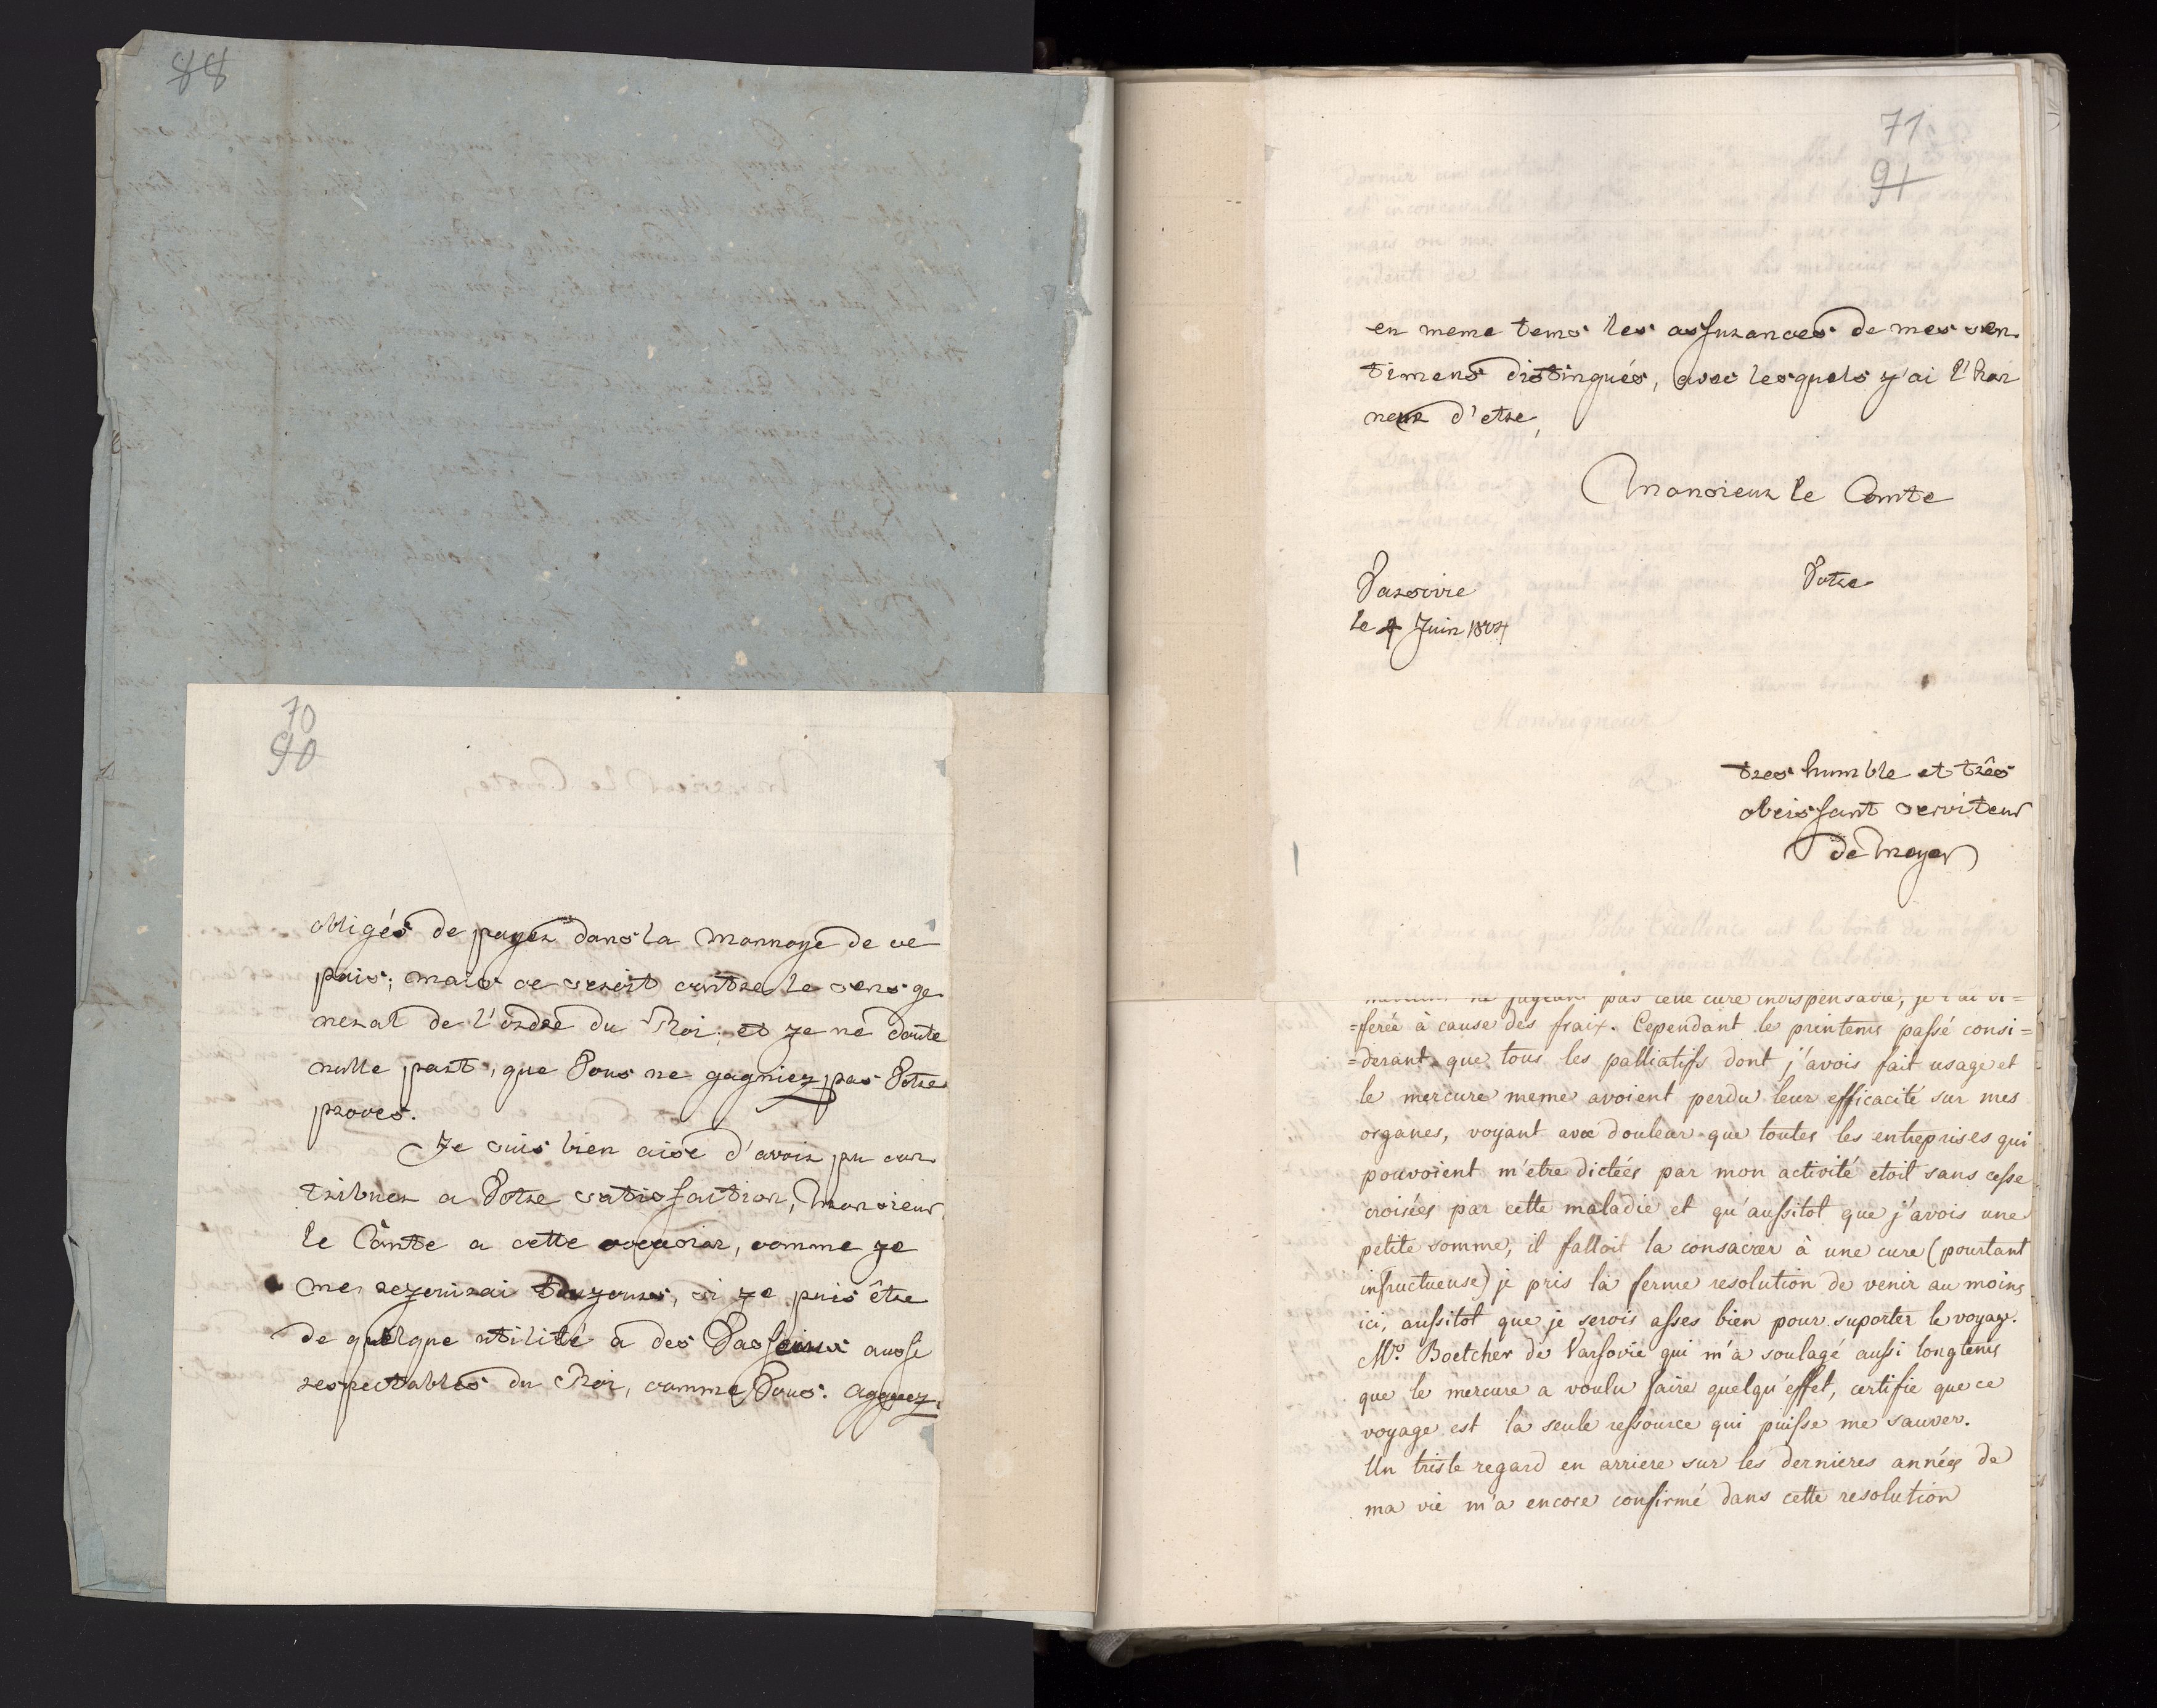 88
70
90
obligés de payer dans la monnoye de ce
pais; mais ce seroit contre le sens ge
neral de l'ordre du Roi; et je ne doute
nulle part, que Vous ne gagniez pas Votre
proces.
Je suis bien aise d'avoir pu con
tribuer a Votre satisfaction, Monsieur
le Comte a cette occasion, comme je
me rejouirai toujours, si je puis être
de quelque utilité a des Vassaux ausse
respectables du Roi, comme Vous. Agreez
71
91
en meme tems les assurances de mes sen
timens distingués, avec lesquels j'ai l'hon
neur d'etre,
Monsieur le Comte
Varsovie
Votre
le 4 Juin 1804
tres humble et très
obeissant serviteur
de Meyer
ne jugeant pas cette cure indispensable, je l'ai di=
=ferée à cause des fraix. Cependant le printems passé consi=
=derant que tous les palliatifs dont j'avois fait usage et
le mercure meme avoient perdu leur efficacité sur mes
organes, voyant avec douleur que toutes les entreprises qui
pouvoient m'etre dictées par mon activité etoit sans cesse
croisées par cette maladie et qu'aussitot que j'avois une
petite somme, il falloit la consacrer à une cure (pourtant
infructueuse) je pris la ferme resolution de venir au moins
ici, aussitot que je serois asses bien pour suporter le voyage.
Mr. Boetcher de Varsovie qui m'a soulagé aussi longtems
que le mercure a voulu faire quelqu'effet, certifie que ce
voyage est la seule ressource qui puisse me sauver.
Un triste regard en arriere sur les dernieres années de
ma vie m'a encore confirmé dans cette resolution